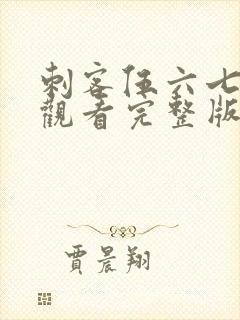 刺客伍六七
觀看完整版
賈晨翔